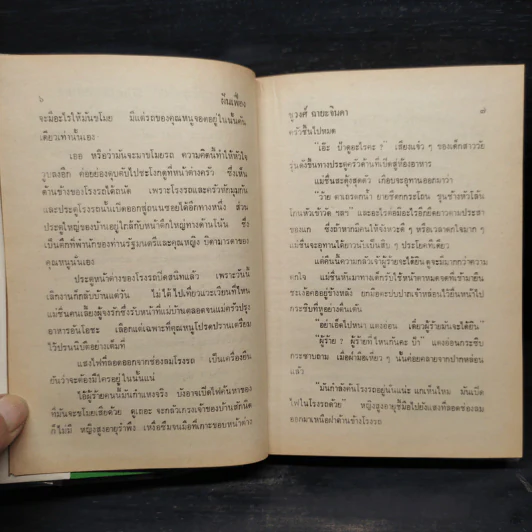 ๖
ฝันเฟื่อง
จะมีอะไรให้มันขโมย มีแต่รถของคุณหนูจอดอยู่ในนั้นคัน
เดียวเท่านั้นเอง
เออ หรือว่ามันจะมาขโมยรถ ความคิดนี้ทำให้หัวใจ
วูบลงอีก ค่อยย่องคืบคืบไปชะโงกดูที่หน้าต่างครัว ซึ่งเห็น
ด้านข้างของโรงรถได้ถนัด เพราะโรงรถและครัวหักมุมกัน
และประตูโรงรถนั้นเปิดออกสู่ถนนซอยได้อีกทางหนึ่ง ส่วน
ประตูใหญ่ของบ้านอยู่ใกล้กับหน้าตึกใหญ่ทางด้านโน้น ซึ่ง
เป็นตึกที่พำนักของท่านรัฐมนตรีและคุณหญิง บิดามารดาของ
คุณหนูนั่นเอง
ประตูหน้าต่างของโรงรถปิดสนิทแล้ว เพราะวันนี้
เลิกงานก็กลับบ้านแต่วัน ไม่ได้ไปเที่ยวแวะเวียนที่ไหน
แม่ชื่นคนเลี้ยงผู้จงรักซึ่งรับหน้าที่แม่บ้านตลอดจนแม่ครัวปรุง
อาหารอันโอชะ เลือกแต่เฉพาะที่คุณหนูโปรดปรานเตรียม
ไว้ปรนนิบัติอย่างเต็มที่
แสงไฟที่ลอดออกจากช่องลมโรงรถ เป็นเครื่องยืน
ยันว่าจะต้องมีใครอยู่ในนั้นแน่
ไอ้ผู้ร้ายคนนี้มันเก่งแท้จริง บังอาจเปิดไฟค้นหาของ
ที่มันจะขโมยเสียด้วย ดูเถอะ จะกลัวเกรงเจ้าของบ้านสักนิด
ก็ไม่มี หญิงสูงอายุรำพึง เหงื่อซึมจนมือที่เกาะขอบหน้าต่าง
ชูวงศ์ ฉายะจินดา
๗
ครัวชื้นไปหมด
“เอ๊ะ ป้าดูอะไรคะ ?” เสียงแจ้ว ๆ ของเด็กสาววัย
รุ่นดังขึ้นทางประตูครัวด้านที่เปิดสู่ห้องอาหาร
แม่ชื่นสะดุ้งสุดตัว เกือบจะอุทานออกมาว่า
โกนหัวเข้าวัด ฯลฯ และอะไรต่อมิอะไรอีกยืดยาวตามประสา
ของแก ซึ่งถ้าหากมีคนให้จังหวะดี ๆ หรือเวลาตกใจมาก ๆ
แม่ชื่นจะอุทานได้ยาวนับเป็นสิบ ๆ ประโยคทีเดียว
แต่คืนนี้ความกลัวเจ้าผู้ร้ายจะได้ยินดูจะมีมากกว่าความ
ตกใจ แม่ชื่นหันมาทางเด็กรับใช้หน้าคมคายที่เข้ามายืน
ชะเง้อคออยู่ข้างหลัง ยกมือตะปบปากเจ้าหล่อนไว้ยื่นหน้าไป
กระซิบที่หูอย่างตื่นเต้น
“อย่าเอ็ดไปหนา แดงอ่อน เดี๋ยวผู้ร้ายมันจะได้ยิน”
“ผู้ร้าย ? ผู้ร้ายที่ไหนกันคะ ป้า” แดงอ่อนกระซิบ
กระซาบถาม เมื่อฝ่ามือเหี่ยว ๆ นั้นค่อยคลายจากปากหล่อน
แล้ว
“มันกำลังค้นโรงรถอยู่นั่นแน่ะ แกเห็นไหม มันเปิด
ไฟในโรงรถด้วย” หญิงสูงอายุชี้มือไปยังแสงที่ลอดช่องลม
ออกมาเหนือฝาด้านข้างโรงรถ